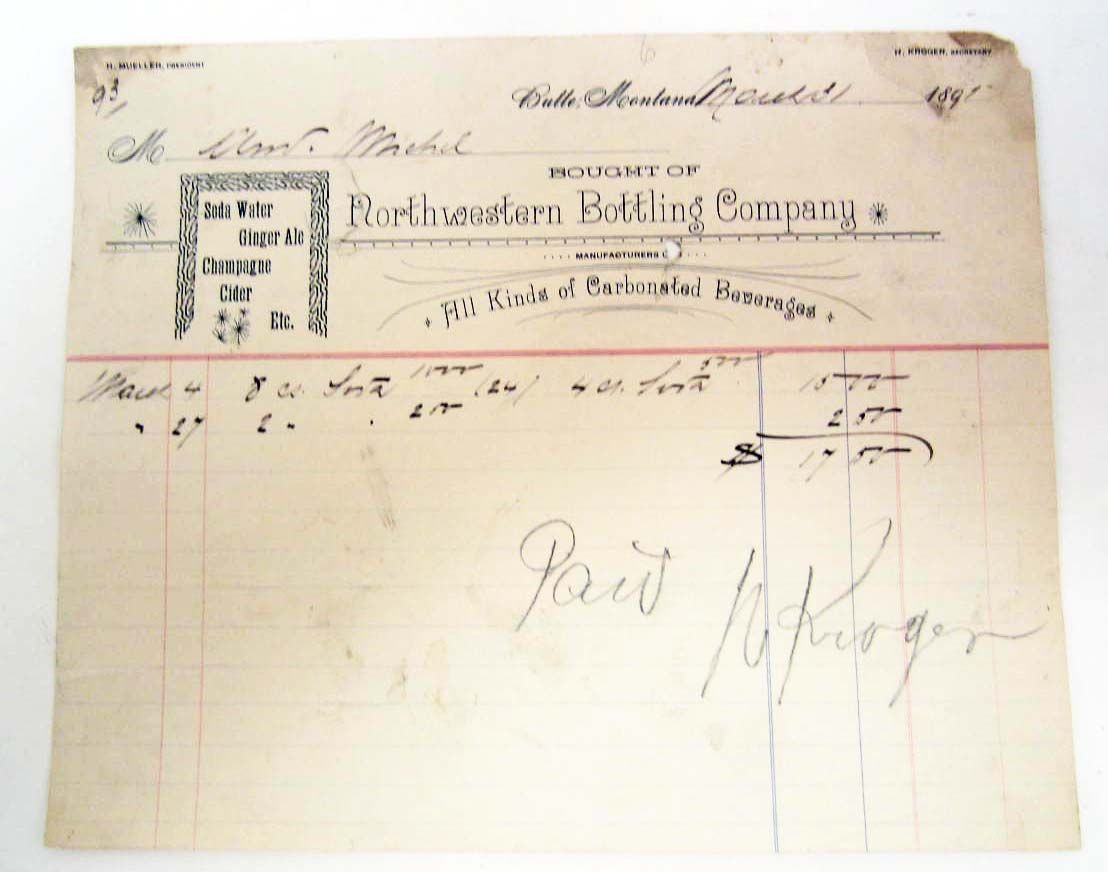 H. MUELLER, PRESIDENT
H. KROGER, SECRETARY
93/
Butte, Montana March 31 189
M
BOUGHT OF
Northwestern Bottling Company
Soda Water
Ginger Ale
Champagne
Cider
Etc.
MANUFACTURERS
All Kinds of Carbonated Beverages
March 4 8 cs. Soda 10 00 (24) 4 cs. Soda 5 00 15 00
" 27 2 " " 2 50 2 50
$ 17 50
Paid H Kroger